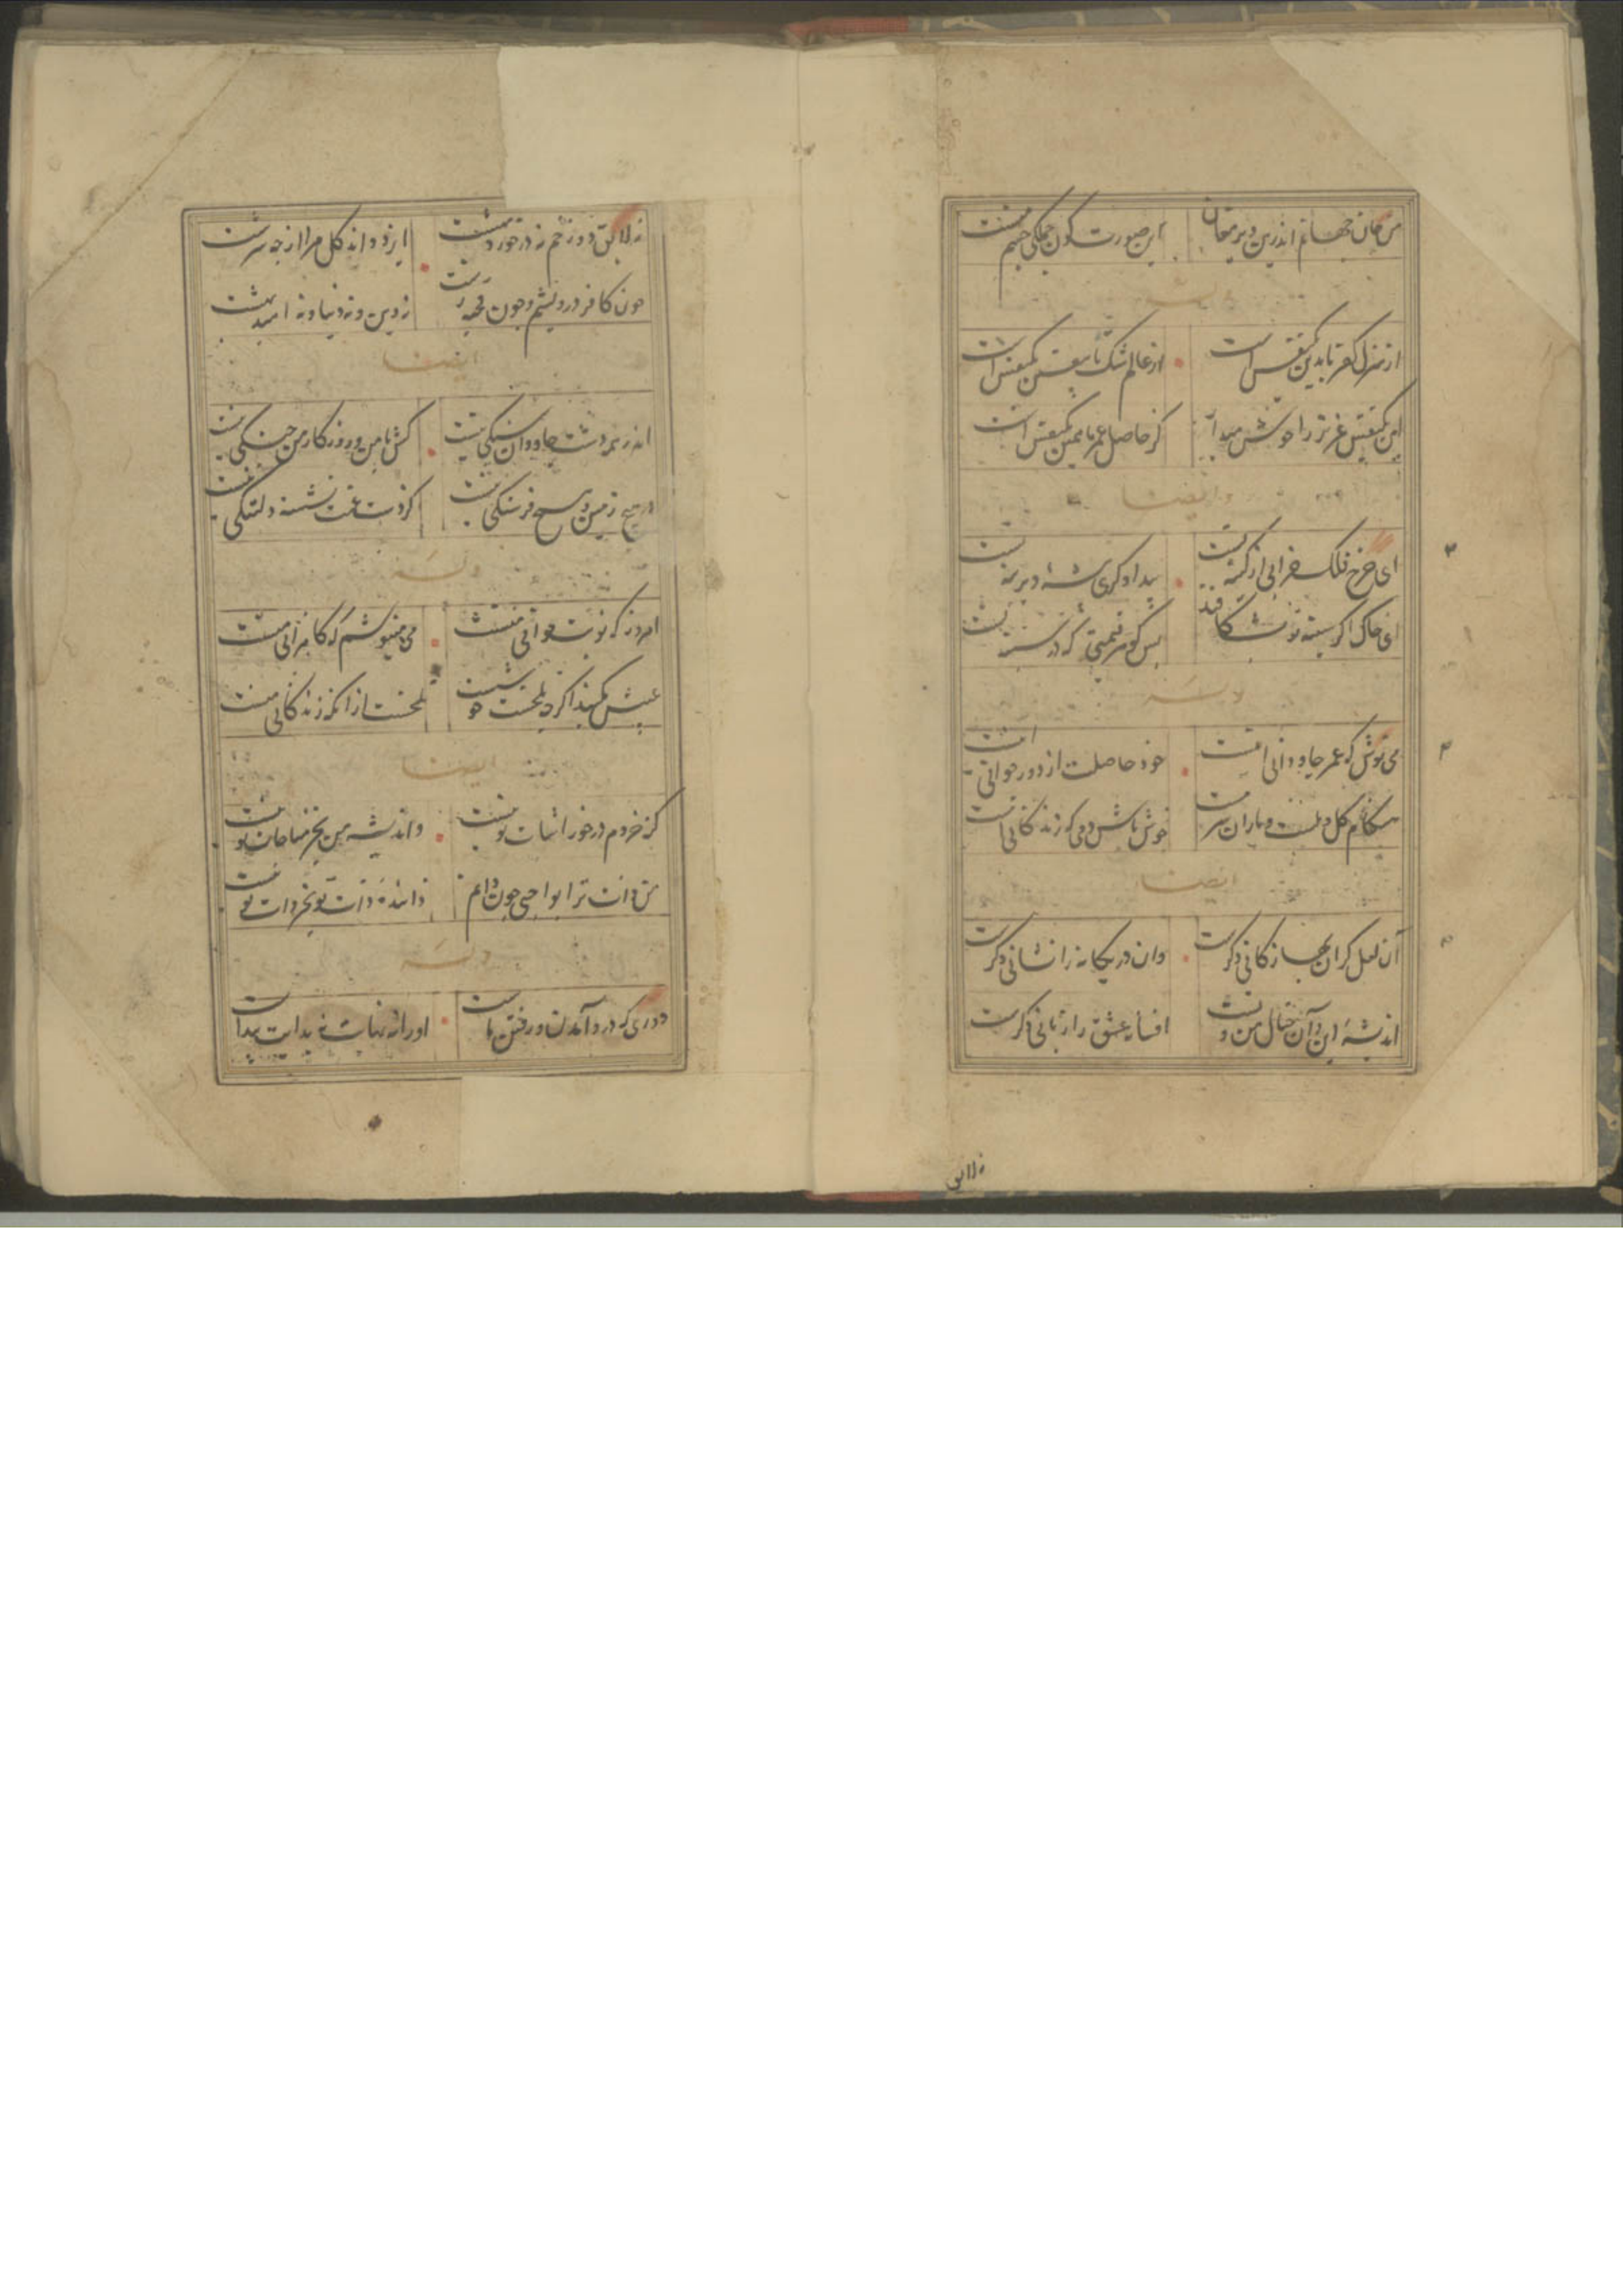 من جان جهانم اندرین دیر مغان این صورت کون جملگی جسم منست
وله
از منزل کفر تا بدین یکنفس است از عالم شک تا یقین یکنفس است
این یکنفس عزیز را خوش میدار کز حاصل عمر ما همین یکنفس است
وایضا
ای چرخ فلک خرابی از کینه تست بیدادگری شیوه دیرینه تست
ای خاک اگر سینه تو بشکافند بس گوهر قیمتی که در سینه تست
وله
می نوش که عمر جاودانی اینست خود حاصلت از دور جوانی اینست
هنگام گل و ملست و یاران سرمست خوش باش دمی که زندگانی اینست
ایضا
آن لعل گران بها ز کانی دگرست وان در یگانه را نشانی دگرست
اندیشه این و آن خیال من و تست افسانه عشق را زبانی دگرست
نه لایق
نه لایق دوزخم نه در خورد بهشت ایزد داند گل مرا از چه سرشت
چون کافر درویشم و چون قحبه زشت نه دین و نه دنیا و نه امید بهشت
ایضا
اندر همه دشت خاوران سنگی نیست کش با من و روزگار من جنگی نیست
در هیچ زمین و هیچ فرسنگی نیست کز دست غمت نشسته دلتنگی نیست
وله
امروز که نوبت جوانی منست می مینوشم که کامرانی منست
عیبش مکنید اگر چه تلخست خوشست تلخست از آنکه زندگانی منست
ایضا
کنه خردم در خور اثبات تو نیست و اندیشه من بجز مناجات تو نیست
من ذات ترا بواجبی چون دانم داننده ذات تو بجز ذات تو نیست
وله
دوری که درو آمدن و رفتن ماست او را نه نهایت نه بدایت پیداست